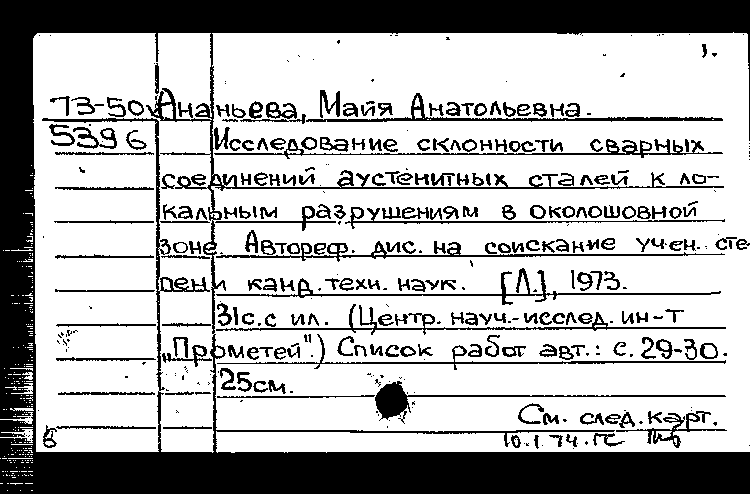 1.
73-50 Ананьева, Майя Анатольевна.
5396 Исследование склонности сварных
соединений аустенитных сталей к ло-
кальным разрушениям в околошовной
зоне. Автореф. дис. на соискание учен. сте-
пени канд. техн. наук. [Л.], 1973.
31с. с ил. (Центр. науч.-исслед. ин-т
„Прометей".) Список работ авт.: с. 29-30.
25см.
См. след. карт.
б 10.1.74.